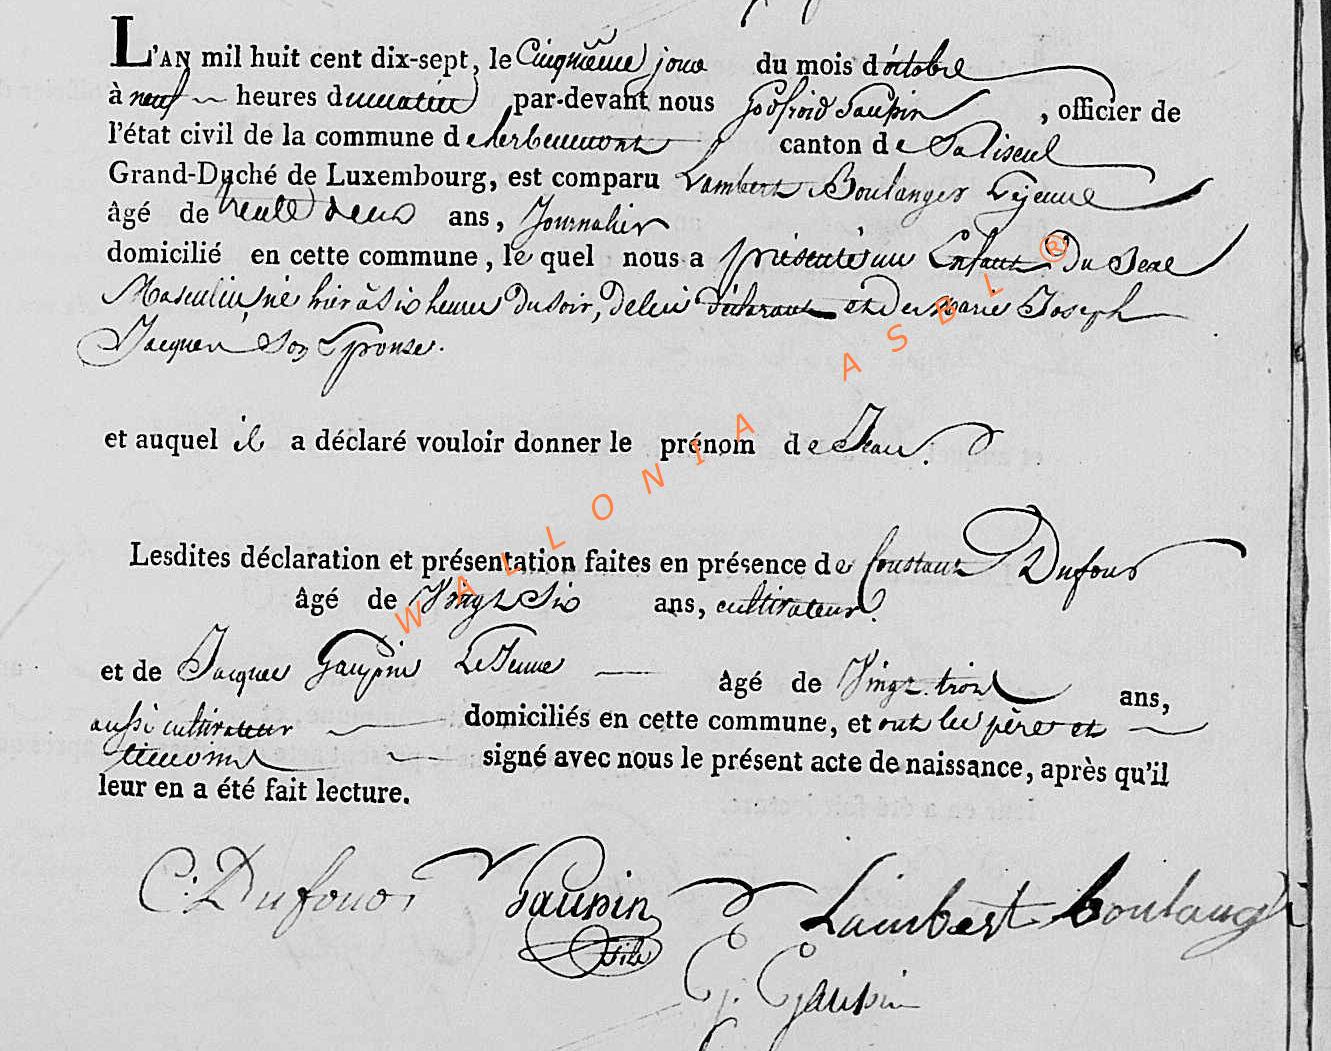 L'AN mil huit cent dix-sept, le Cinquieme jour du mois d'octobre
à neuf heures du matin par-devant nous Godfroid Gaupin, officier de
l'état civil de la commune de herbeumont canton de Paliseul
Grand-Duché de Luxembourg, est comparu Lambert Boulanger Lejeune
âgé de trente deux ans, Journalier
domicilié en cette commune, le quel nous a présenté un Enfant Du Sexe
Masculin, né hier à Six heures Du Soir, De lui déclarant et De marie Joseph
Jacques Son Epouse.
et auquel il a déclaré vouloir donner le prénom de Jean.
Lesdites déclaration et présentation faites en présence de Constant Dufour
âgé de Vingt Six ans, cultivateur.
et de Jacques Gaupin Le Jeune âgé de Vingt trois ans,
aussi cultivateur domiciliés en cette commune, et ont les père et
témoins signé avec nous le présent acte de naissance, après qu'il
leur en a été fait lecture.
C. Dufour Gaupin Lambert boulange
fils
G. Gaupin
WALLONIA ASBL ®